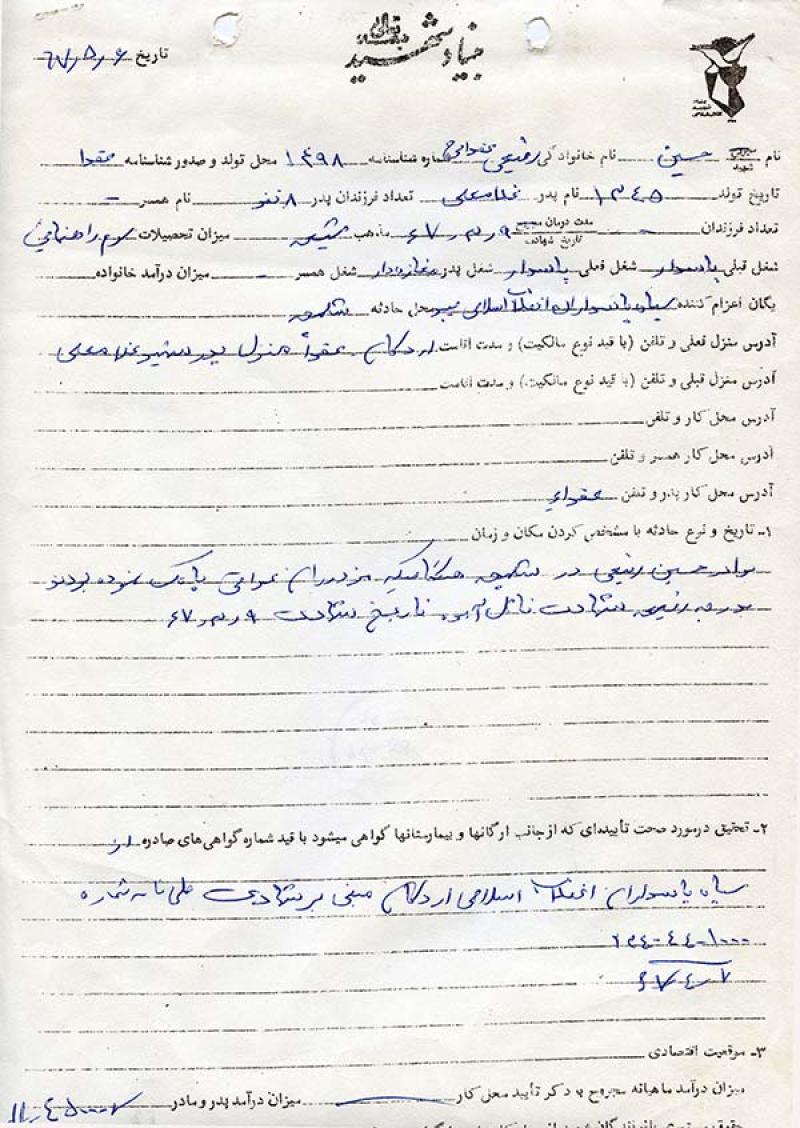 بنیاد شهید
تاریخ ۶۷/۵/۶
نام مجروح شهید حسین نام خانوادگی رفیعی عقدائی شماره شناسنامه ۱۳۹۸ محل تولد و صدور شناسنامه عقدا
تاریخ تولد ۱۳۴۵ نام پدر غلامعلی تعداد فرزندان پدر ۸ نفر نام همسر -
تعداد فرزندان - تاریخ شهادت ۶۷/۳/۹ مذهب شیعه میزان تحصیلات سوم راهنمایی
شغل قبلی پاسدار شغل فعلی پاسدار شغل پدر مغازه‌دار شغل همسر - میزان درآمد خانواده
یگان اعزام کننده سپاه پاسداران انقلاب اسلامی محل حادثه شلمچه
آدرس منزل فعلی و تلفن (با قید نوع مالکیت) و مدت اقامت اردکان عقدا منزل پدر شهید غلامعلی
آدرس منزل قبلی و تلفن (با قید نوع مالکیت) و مدت اقامت
آدرس محل کار و تلفن
آدرس محل کار همسر و تلفن
آدرس محل کار پدر و تلفن عقداء
۱- تاریخ و نوع حادثه با مشخص کردن مکان و زمان
برادر حسین رفیعی در شلمچه هنگامیکه مزدوران عراقی پاتک نموده بودند
بدرجه رفیع شهادت نائل آمد تاریخ شهادت ۶۷/۳/۹
۲- تحقیق درمورد صحت تأییده‌ای که از جانب ارگانها و بیمارستانها گواهی میشود با قید شماره گواهی‌های صادره از
سپاه پاسداران انقلاب اسلامی اردکان مبنی بر شهادت طی نامه شماره
۲۳۴-۴۴-۱۰۰۰
۶۷/۴/۷
۳- موقعیت اقتصادی
میزان درآمد ماهیانه مجروح با ذکر تأیید محل کار میزان درآمد پدر و مادر ۴۵۰۰۰ ریال